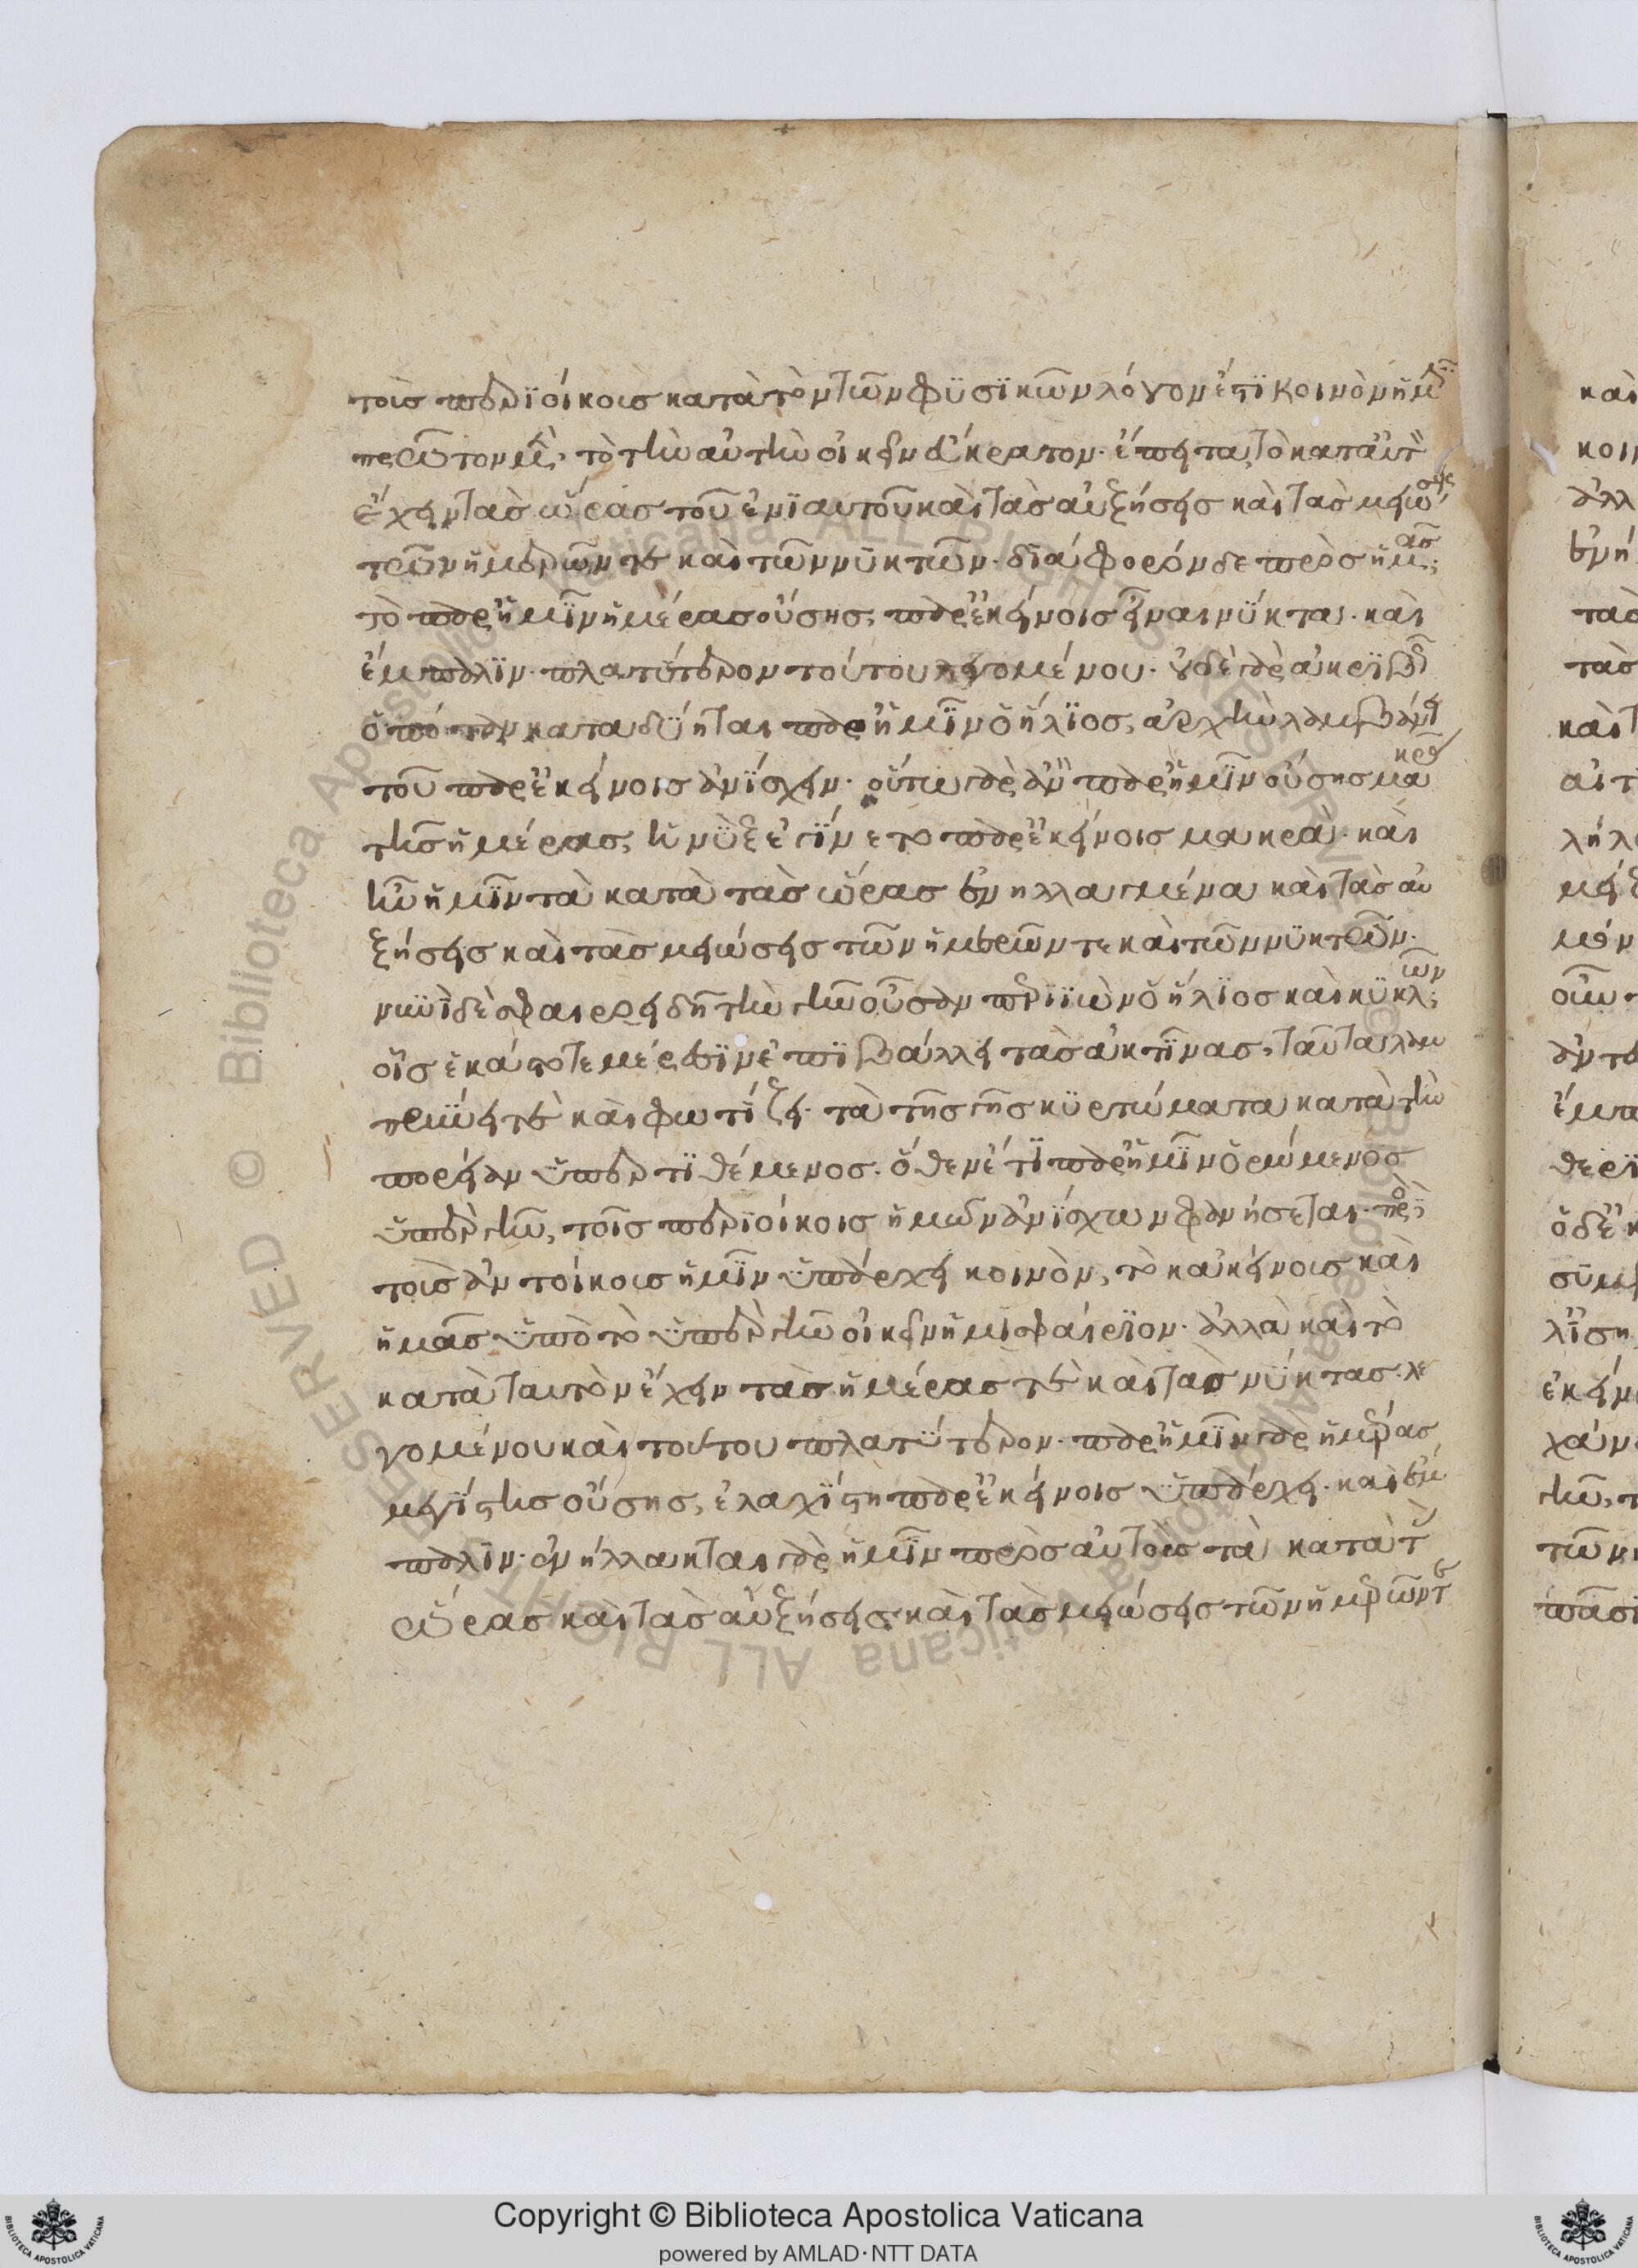 τοῖς περιοίκοις κατὰ τὸν τῶν φυσικῶν λόγον ἐστὶ κοινὸν ἡμῖν
πρῶτον μὲν, τὸ τὴν αὐτὴν οἰκεῖν εὔκρατον. ἔπειτα, τὸ κατὰ
ἔχειν τὰς ὥρας τοῦ ἐνιαυτοῦ καὶ τὰς αὐξήσεις καὶ τὰς μειώσεις
τῶν ἡμερῶν τε καὶ τῶν νυκτῶν. διάφορον δε πρὸς ἡμᾶς,
τὸ παρ' ἡμῖν ἡμέρας οὔσης, παρ' ἐκείνοις εἶναι νύκτα. καὶ
ἔμπαλιν. πλατύτερον τούτου λεγομένου. οὐδὲ γὰρ ἀκριβῶς
ὁπόταν καταδύηται παρ' ἡμῖν ὁ ἥλιος, ἀρχὴν λαμβάνει
τοῦ παρ' ἐκείνοις ἀνίσχειν. οὕτω γὰρ ἂν παρ' ἡμῖν οὔσης μακρᾶς
τῆς ἡμέρας, ἡ νὺξ ἐγίνετο παρ' ἐκείνοις μακρά. καὶ
ἦν ἡμῖν τὰ κατὰ τὰς ὥρας ἐνηλλαγμένα καὶ τὰς αυ
ξήσεις καὶ τὰς μειώσεις τῶν ἡμερῶν τε καὶ τῶν νυκτῶν.
νυνὶ δὲ σφαιροειδῆ τὴν γῆν οὖσαν περιιὼν ὁ ἥλιος καὶ κυκλῶν,
οἷς ἑκάστοτε μέρεσιν ἐπιβάλλει τὰς ἀκτῖνας, ταῦτα λαμ
πρύνει τὲ καὶ φωτίζει. τὰ τῆς γῆς κυρτώματα κατὰ τὴν
πορείαν ὑπερτιθέμενος. ὅθεν ἔτι παρ' ἡμῖν ὁρώμενος
ὑπὲρ γῆν, τοῖς περιοίκοις ἡμῶν ἀνίσχων φανήσεται. πρὸς
τοὺς ἀντοίκοις ἡμῖν ὑπάρχει κοινὸν, τὸ κἀκείνοις καὶ
ἡμᾶς ὑπὸ τὸ ὑπὲρ γῆν οἰκεῖν ἡμισφαίριον. ἀλλὰ καὶ τὸ
κατὰ ταυτὸν ἔχειν τὰς ἡμέρας τὲ καὶ τὰς νύκτας. λε
γομένου καὶ τούτου πλατύτερον. παρ' ἡμῖν γὰρ ἡμέρας
μεγίστης οὔσης, ἐλαχίστη παρ' ἐκείνοις ὑπάρχει. καὶ ἔμ
παλιν. ἐνήλλακται γὰρ ἡμῖν πρὸς αὐτοὺς τὰ κατὰ τὰς
ὥρας καὶ τὰς αὐξήσεις καὶ τὰς μειώσεις τῶν ἡμερῶν τε
Copyright © Biblioteca Apostolica Vaticana
powered by AMLAD·NTT DATA